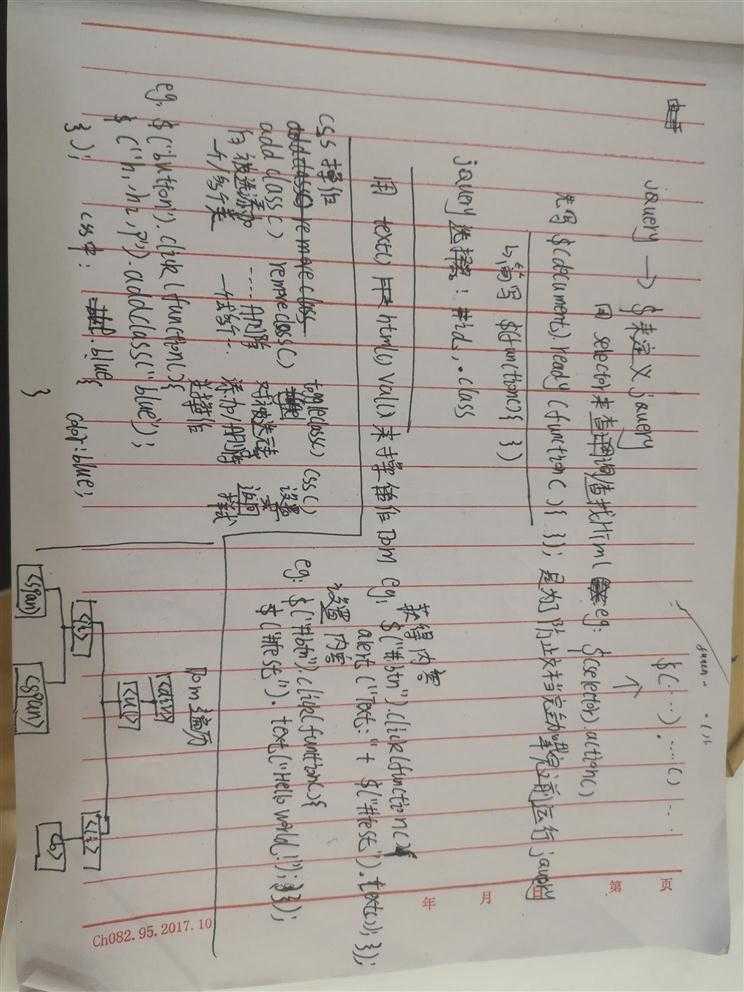 第 页
年 月 日
$(....).....() ...
jquery → $ 来定义 jquery
用 selector 来查询查找Html eg: $(selector).action()
先写 $(document).ready(function(){ }); 是为了防止文档完全加载完之前运行 jquery
↳简写 $(function(){ })
jquery 选择器: #id, .class
用 text() html() val() 来操作 Dom
获得内容
eg: $("#btn").click(function(){
alert("Text:" + $("#test").text()); });
设置内容
eg: $("#btn").click(function(){
$("#test").text("Hello world!"); });
css 操作
addclass() removeclass() toggleclass() css()
向被选添加一个/多个类
......删除一个或多个..
对被选元素添加/删除
设置或返回样式
eg. $("button").click(function(){
$("h1,h2,p").addclass("blue");
});
css中: .blue{
color:blue;
}
Dom遍历
<div>
<ul>
<li>
<li>
<span>
<span>
<b>
Ch082.95.2017.10